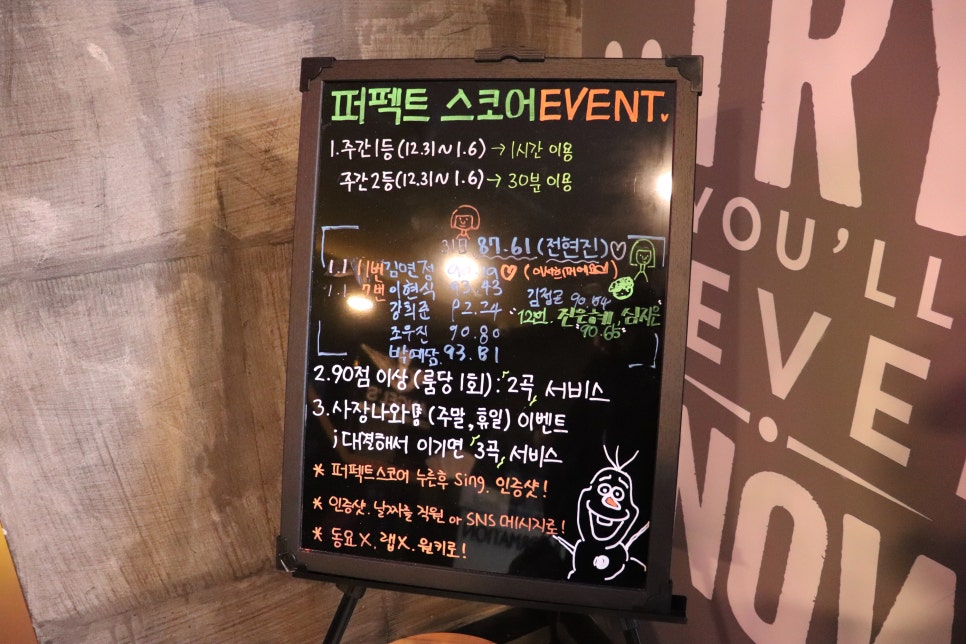 퍼펙트 스코어 EVENT.
1. 주간 1등 (12.31 ~ 1.6) → 1시간 이용
주간 2등 (12.31 ~ 1.6) → 30분 이용
31일 87.61 (전현진) ♡
1.1 11번 김연정
1.1 7번 이현식 93.43
강희준 92.24
김정근 90.84
12번.
90.65
조우진 90.80
박예담 93.81
2. 90점 이상 (룸당 1회) : 2곡 서비스
3. 사장나와 (주말, 휴일) 이벤트
; 대결해서 이기면 3곡 서비스
* 퍼펙트스코어 누른후 Sing. 인증샷!
* 인증샷. 날짜를 직원 or SNS 메시지로!
* 동요X. 랩X. 원키로!
TRY
YOU'LL
EVE
NOW